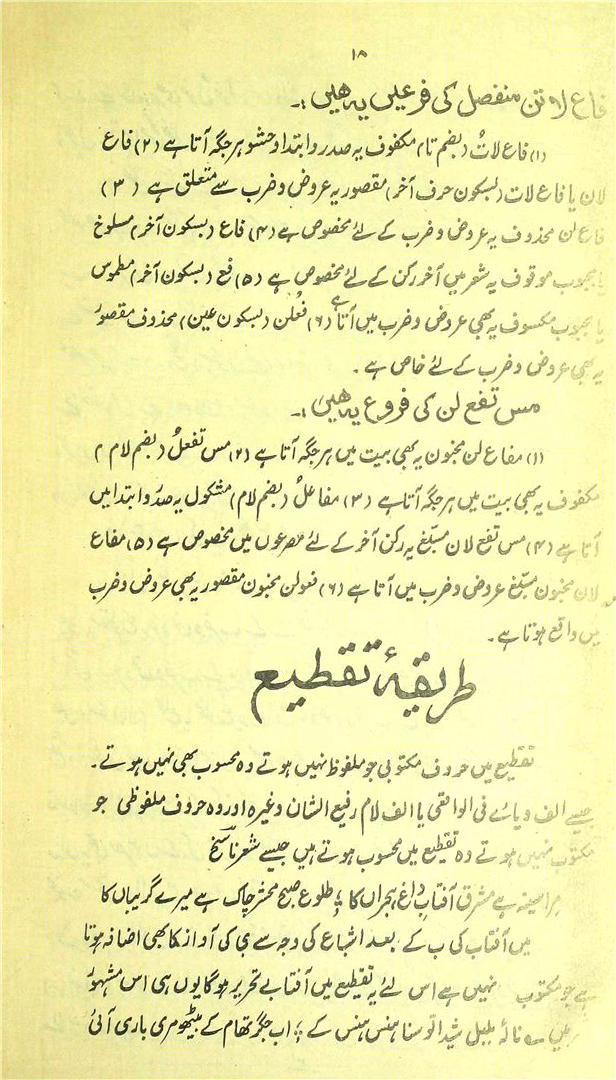 ۱۸
فاع لاتن منفصل کی فرعیں یہ ھیں :۔
(۱) فاع لاتُ (بضم تا) مکفوف یہ صدر و ابتدا و حشو ہر جگہ آتا ہے (۲) فاع
لان یا فاع لات (بسکون حرف آخر) مقصور یہ عروض و ضرب سے متعلق ہے (۳)
فاع لن محذوف یہ عروض و ضرب کے لئے مخصوص ہے (۴) فاع (بسکون آخر) مسلوخ
یا مجبوب موقوف یہ شعر میں آخر رکن کے لئے مخصوص ہے (۵) فع (بسکون آخر) مطموس
یا مجبوب مکسوف یہ بھی عروض و ضرب میں آتا ہے (۶) فعْلن (بسکون عین) محذوف مقصور
یہ بھی عروض و ضرب کے لئے خاص ہے ۔
مس تفع لن کی فروع یہ ھیں :۔
(۱) مفاع لن مخبون یہ بھی بیت میں ہر جگہ آتا ہے (۲) مس تفعلُ (بضم لام)
مکفوف یہ بھی بیت میں ہر جگہ آتا ہے (۳) مفاعلُ (بضم لام) مشکول یہ صدر و ابتدا میں
آتا ہے (۴) مس تفع لان مسبّغ یہ رکن آخر کے لئے مصرعوں میں مخصوص ہے (۵) مفاع
لان مخبون مسبّغ عروض و ضرب میں آتا ہے (۶) فعولن مخبون مقصور یہ بھی عروض و ضرب
میں واقع ہوتا ہے ۔
طریقۂ تقطیع
تقطیع میں حروف مکتوبی جو ملفوظ نہیں ہوتے وہ محسوب بھی نہیں ہوتے ۔
جیسے الف و یائے فی الواقعی یا الف لام رفیع الشان وغیرہ اور وہ حروف ملفوظی جو
مکتوب نہیں ہوتے وہ تقطیع میں محسوب ہوتے ہیں جیسے شعر ناسخ
مرا سینہ ہے مشرق آفتابِ داغ ہجراں کا ؛ طلوع صبح محشر چاک ہے میرے گریباں کا
میں آفتاب کی ب کے بعد اشباع کی وجہ سے ی کی آواز کا بھی اضافہ ہوتا
ہے جو مکتوب نہیں ہے اس لئے یہ تقطیع میں آفتابے تحریر ہوگا یوں ہی اس مشہور
نالۂ بلبل شیدا تو سنا ہنس ہنس کے ؛ اب جگر تھام کے بیٹھو مری باری آئی